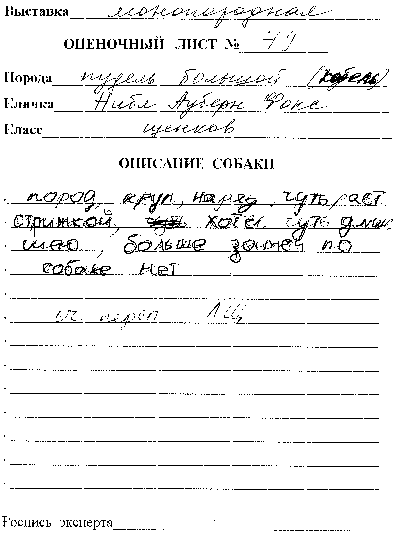 Выставка монопородная
ОЦЕНОЧНЫЙ ЛИСТ № 49
Порода пудель большой (кобель)
Кличка Нибл Ауберн Фокс
Класс щенков
ОПИСАНИЕ СОБАКИ
пород, круп, наряд, чуть раст
стрижкой, хотел чуть
шею, больше замеч по
собаке нет
оч персп ЛЩ
Роспись эксперта